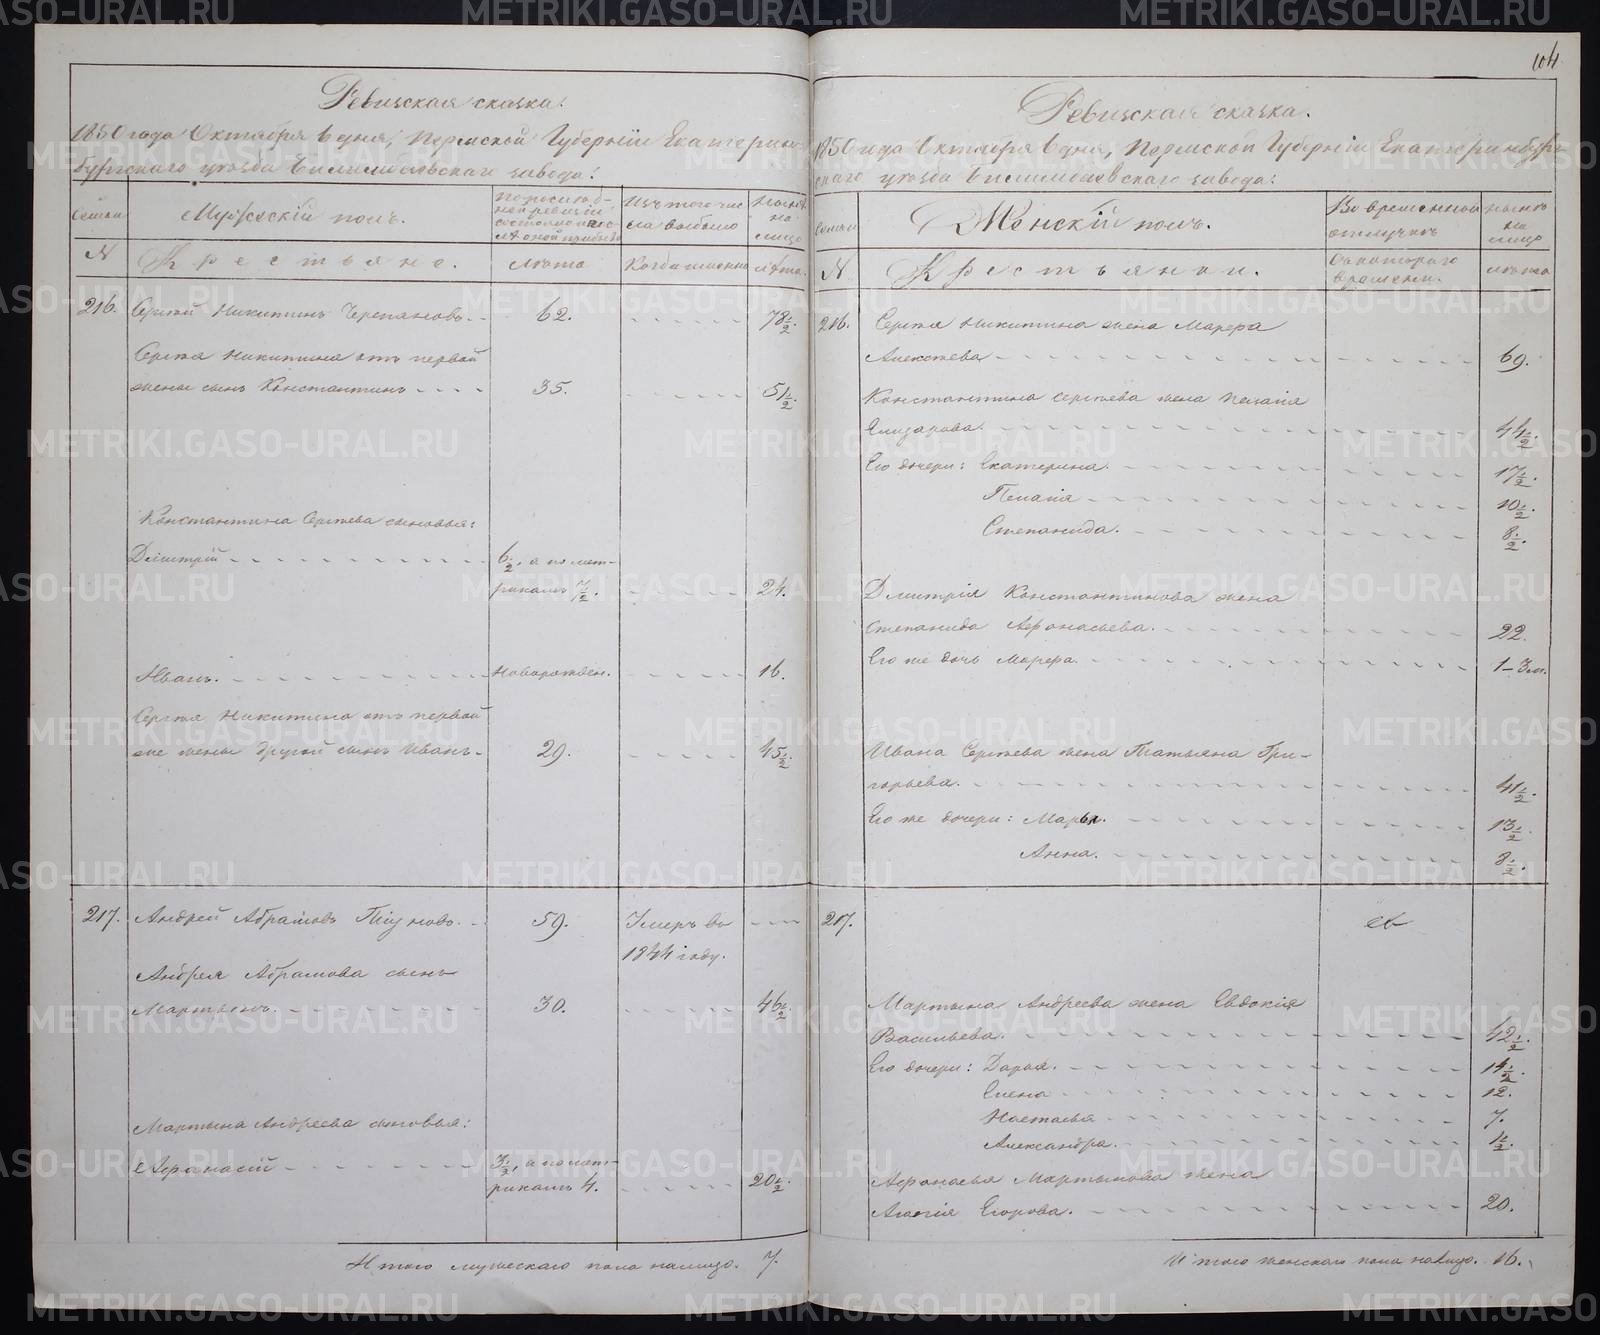 104
Ревизская сказка.
1850 года Октября 6 дня, Пермской Губерніи Екатерин-
бургскаго уѣзда Билимбаевскаго завода.
Семьи
Мужескій полъ.
По послед-
ней ревизіи
состояло и пос-
лѣ оной прибыло
Изъ того чис-
ла выбыло
Нынѣ
на
лицо
N
Крестьяне.
Лѣта
Когда именно
Лѣта.
216. Сергѣй Никитинъ Черепановъ. 62. 78 1/2.
Сергѣя Никитина отъ первой
жены сынъ Константинъ 35. 51 1/2.
Константина Сергѣева сыновья:
Дмитрій 6 1/2, а по мет-
рикамъ 7 1/2. 24.
Иванъ. Новорожден. 16.
Сергѣя Никитина отъ первой
же жены другой сынъ Иванъ 29. 45 1/2.
217. Андрей Абрамовъ 59. Умеръ въ
1844 году.
Андрея Абрамова сынъ
Мартынъ. 30. 46 1/2.
Мартына Андреева сыновья:
Афанасій 3 1/2, а по мет-
рикамъ 4. 20 1/2.
Итого мужескаго пола налицо. 7.
Ревизская сказка.
1850 года Октября 6 дня, Пермской Губерніи Екатеринбург-
скаго уѣзда Билимбаевскаго завода.
Семьи
Женскій полъ.
Во временной
отлучкѣ
Нынѣ
на
лицо
N
Крестьянки.
Съ котораго
времени.
Лѣта
216. Сергѣя Никитина жена Марфа
Алексѣева 69.
Константина Сергѣева жена Пелагія
Елизарова. 44 1/2.
Его дочери: Екатерина. 17 1/2.
Пелагія 10 1/2.
Степанида. 8 1/2.
Дмитрія Константинова жена
Степанида Афанасьева. 22.
Его же дочь Марфа. 1-3 м.
Ивана Сергѣева жена Татьяна Гри-
горьева. 41 1/2.
Его же дочери: Марья. 13 1/2.
Анна. 8 1/2.
217.
Мартына Андреева жена Евдокія
Васильева. 42 1/2.
Его дочери: Дарья. 14 1/2.
Елена 12.
Настасья 7.
Александра. 1/2.
Афанасья Мартынова жена
Агафія Егорова. 20.
Итого женскаго пола налицо. 16.
METRIKI.GASO-URAL.RU